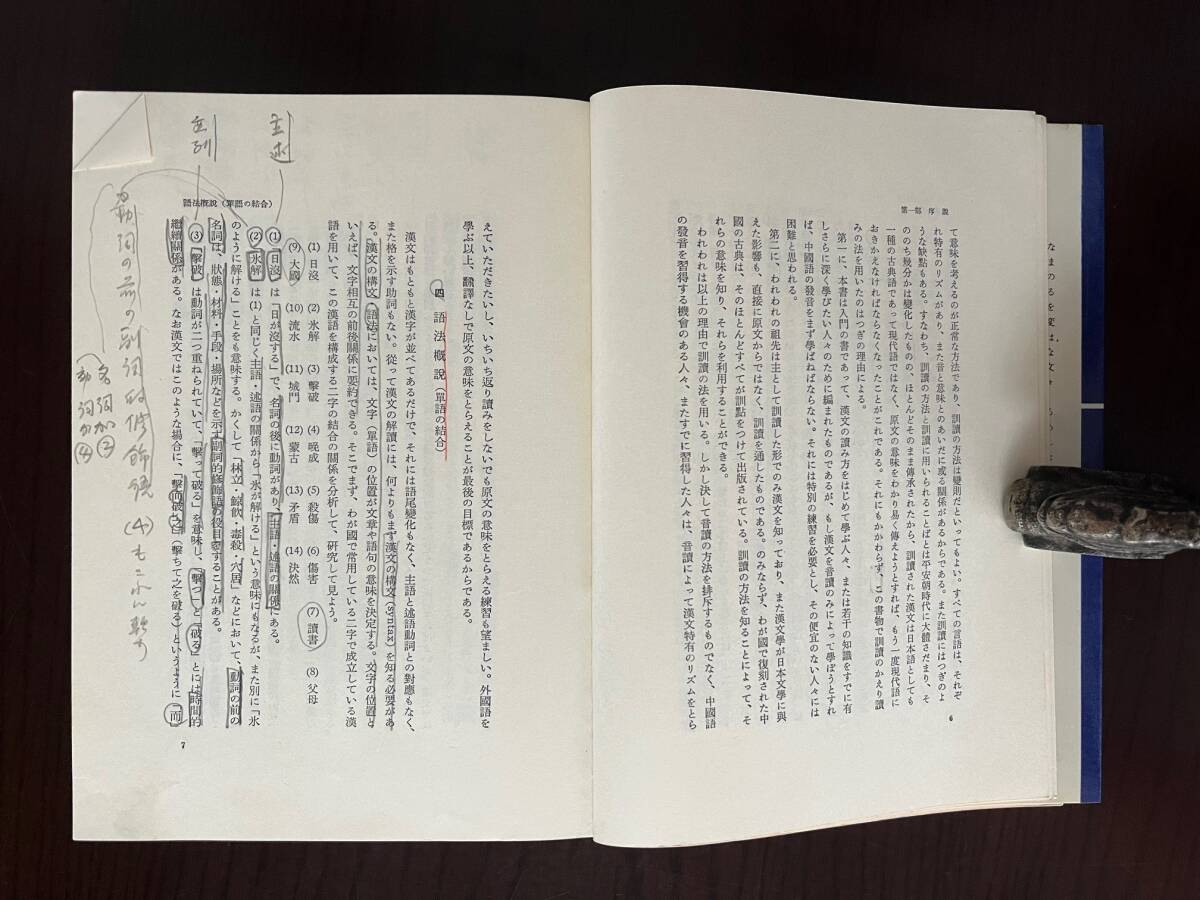 第一部 序 說
て意味を考えるのが正常な方法であり、訓讀の方法は變則だといってもよい。すべての言語は、それぞ
れ特有のリズムがあり、また音と意味とのあいだに或る關係があるからである。また訓讀にはつぎのよ
うな缺點もある。すなわち、訓讀の方法と訓讀に用いられることばとは平安朝時代に大體さだまり、そ
ののち幾分かは變化したものの、ほとんどそのまま傳承されたから、訓讀された漢文は日本語としても
一種の古典語であって現代語ではなく、原文の意味をわかり易く傳えようとすれば、もう一度現代語に
おきかえなければならなくなったことがこれである。それにもかかわらず、この書物で訓讀のかえり讀
みの法を用いたのはつぎの理由による。
第一に、本書は入門の書であって、漢文の讀み方をはじめて學ぶ人々、または若干の知識をすでに有
しさらに深く學びたい人々のために編まれたものであるが、もし漢文を音讀のみによって學ぼうとすれ
ば、中國語の發音をまず學ばねばならない。それには特別の練習を必要とし、その便宜のない人々には
困難と思われる。
第二に、われわれの祖先は主として訓讀した形でのみ漢文を知っており、また漢文學が日本文學に與
えた影響も、直接に原文からではなく、訓讀を通したものである。のみならず、わが國で復刻された中
國の古典は、そのほとんどすべてが訓點をつけて出版されている。訓讀の方法を知ることによって、そ
れらの意味を知り、それらを利用することができる。
われわれは以上の理由で訓讀の法を用いる。しかし決して音讀の方法を排斥するものでなく、中國語
の發音を習得する機會のある人々、またすでに習得した人々は、音讀によって漢文特有のリズムをとら
6
えていただきたいし、いちいち返り讀みをしないでも原文の意味をとらえる練習も望ましい。外國語を
學ぶ以上、飜譯なしで原文の意味をとらえることが最後の目標であるからである。
四 語法概說（單語の結合）
漢文はもともと漢字が並べてあるだけで、それには語尾變化もなく、主語と述語動詞との對應もなく、
また格を示す助詞もない。從って漢文の解讀には、何よりもまず漢文の構文(syntax)を知る必要があ
る。漢文の構文（語法）においては、文字（單語）の位置が文章や語句の意味を決定する。文字の位置と
いえば、文字相互の前後關係に要約できる。そこでまず、わが國で常用している二字で成立している漢
語を用いて、この漢語を構成する二字の結合の關係を分析して、研究して見よう。
(1) 日沒 (2) 氷解 (3) 擊破 (4) 晩成 (5) 殺傷 (6) 傷害 (7) 讀書 (8) 父母
(9) 大國 (10) 流水 (11) 城門 (12) 蒙古 (13) 矛盾 (14) 決然
(1)「日沒」は「日が沒する」で、名詞の後に動詞があり、主語・述語の關係にある。
(2)「氷解」は(1)と同じく主語・述語の關係から「氷が解ける」という意味にもなるが、また別に「氷
のように解ける」ことをも意味する。かくして「林立・鯨飮・毒殺・穴居」などにおいて、動詞の前の
名詞は、狀態・材料・手段・場所などを示す副詞的修飾語の役目をすることがある。
(3)「擊破」は動詞が二つ重ねられていて、「擊って破る」を意味し、「擊つ」と「破る」とには時間的
繼續關係がある。なお漢文ではこのような場合に、「擊而破之」（擊ちて之を破る）というように「而」
語法概說（單語の結合）
7
主述
動詞の前の副詞的修飾語
名詞が②
動詞が④